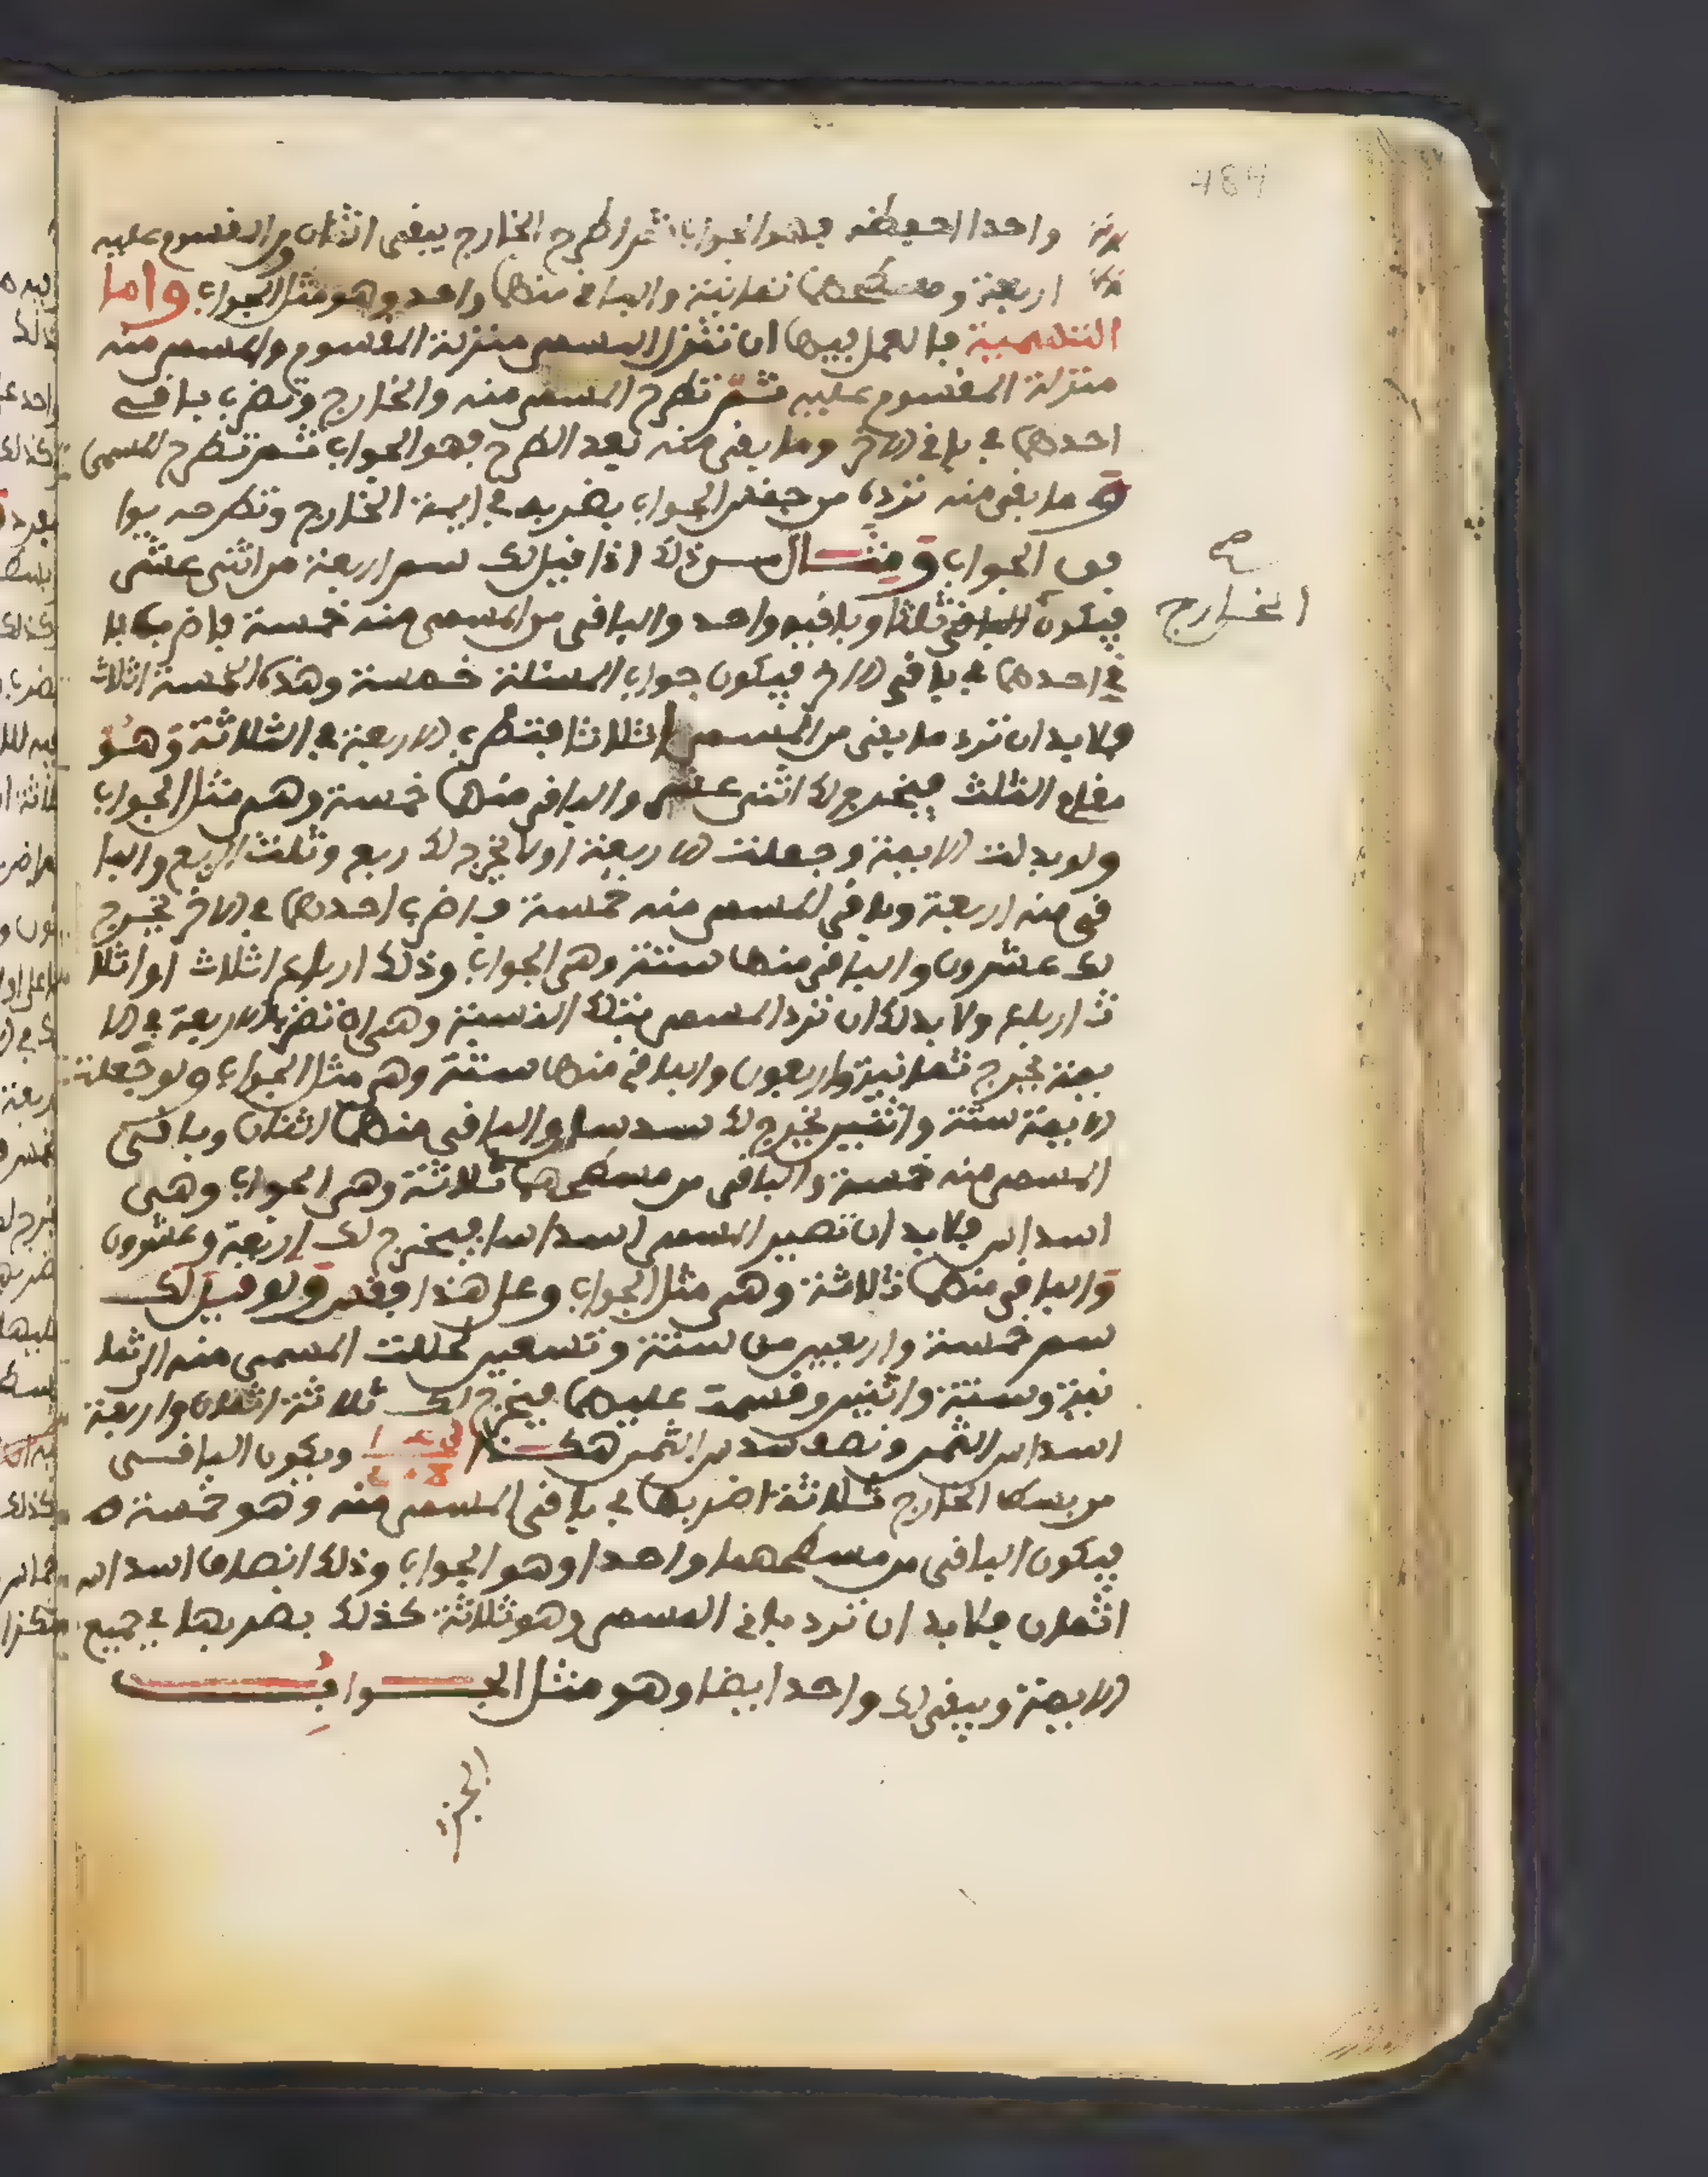 484
واحدا احفظه فهو الجواب ثم اطرح الخارج يبقى اثنان ومن المقسوم عليه
اربعة ومسطحهما ثمانية والباقي منها واحد وهو مثل الجواب واما
التسمية فالعمل فيها ان تنزل المسمى منزلة المقسوم والمسمى منه
منزلة المقسوم عليه ثم تطرح المسمى منه والخارج وتضرب باقي
احدهما في باقي الاخر وما بقى منه بعد الطرح فهو الجواب ثم تطرح المسمى
و ما بقى منه ترده من جنس الجواب بضربه في ايمة الخارج وتطرحه يوا
فق الجواب ومثال ذلك اذا قيل لك سم اربعة من اثنى عشر
فيكون ثلثا وباقيه واحد والباقي من المسمى منه خمسة فاضرب با
صح
الخارج
قي احدهما في باقي الاخر فيكون جواب المسئلة خمسة وهذه الخمسة اثلاث
فلا بد ان ترد ما بقى من المسمى اثلاثا فتضرب الاربعة في الثلاثة وهو
مقام الثلث فيخرج لك اثنى عشر والباقي منها خمسة وهي مثل الجواب
ولو بدلت الايمة وجعلت الاربعة اولا يخرج لك ربع وثلث الربع والبا
قي منه اربعة وباقي المسمى منه خمسة فاضرب احدهما في الاخر يخرج
لك عشرون والباقي منها ستة وهي الجواب وذلك ارباع اثلاث او اثلا
ث ارباع ولا بد لك ان ترد المسمى بتلك النسبة وهي ان تضرب الاربعة في الا
يمة يخرج ثمانية واربعون والباقي منها ستة وهي مثل الجواب ولو جعلت
الايمة ستة واثنين يخرج لك سدسا والباقي منها اثنان وباقي
المسمى منه خمسة والباقي من مسطحهما ثلاثة وهي الجواب وهي
اسداس فلا بد ان تصير المسمى اسداسا فيخرج لك اربعة وعشرون
والباقي منها ثلاثة وهي مثل الجواب وعلى هذا فقس ولو قيل لك
سم خمسة واربعين من ستة وتسعين لحللت المسمى منه الى ثما
نية وستة واثنين وقسمت عليها فيخرج لك ثلاثة اثمان واربعة
اسداس الثمن ونصف سدس الثمن هكذا ويكون الباقي
من بسط الخارج ثلاثة اضربها في باقي المسمى منه وهو خمسة
فيكون الباقي من مسطحهما واحدا وهو الجواب وذلك انصاف اسداس
اثمان فلا بد ان ترد باقي المسمى وهو ثلاثة كذلك بضربها في جميع
الايمة ويبقى لك واحد ايضا وهو مثل الجواب